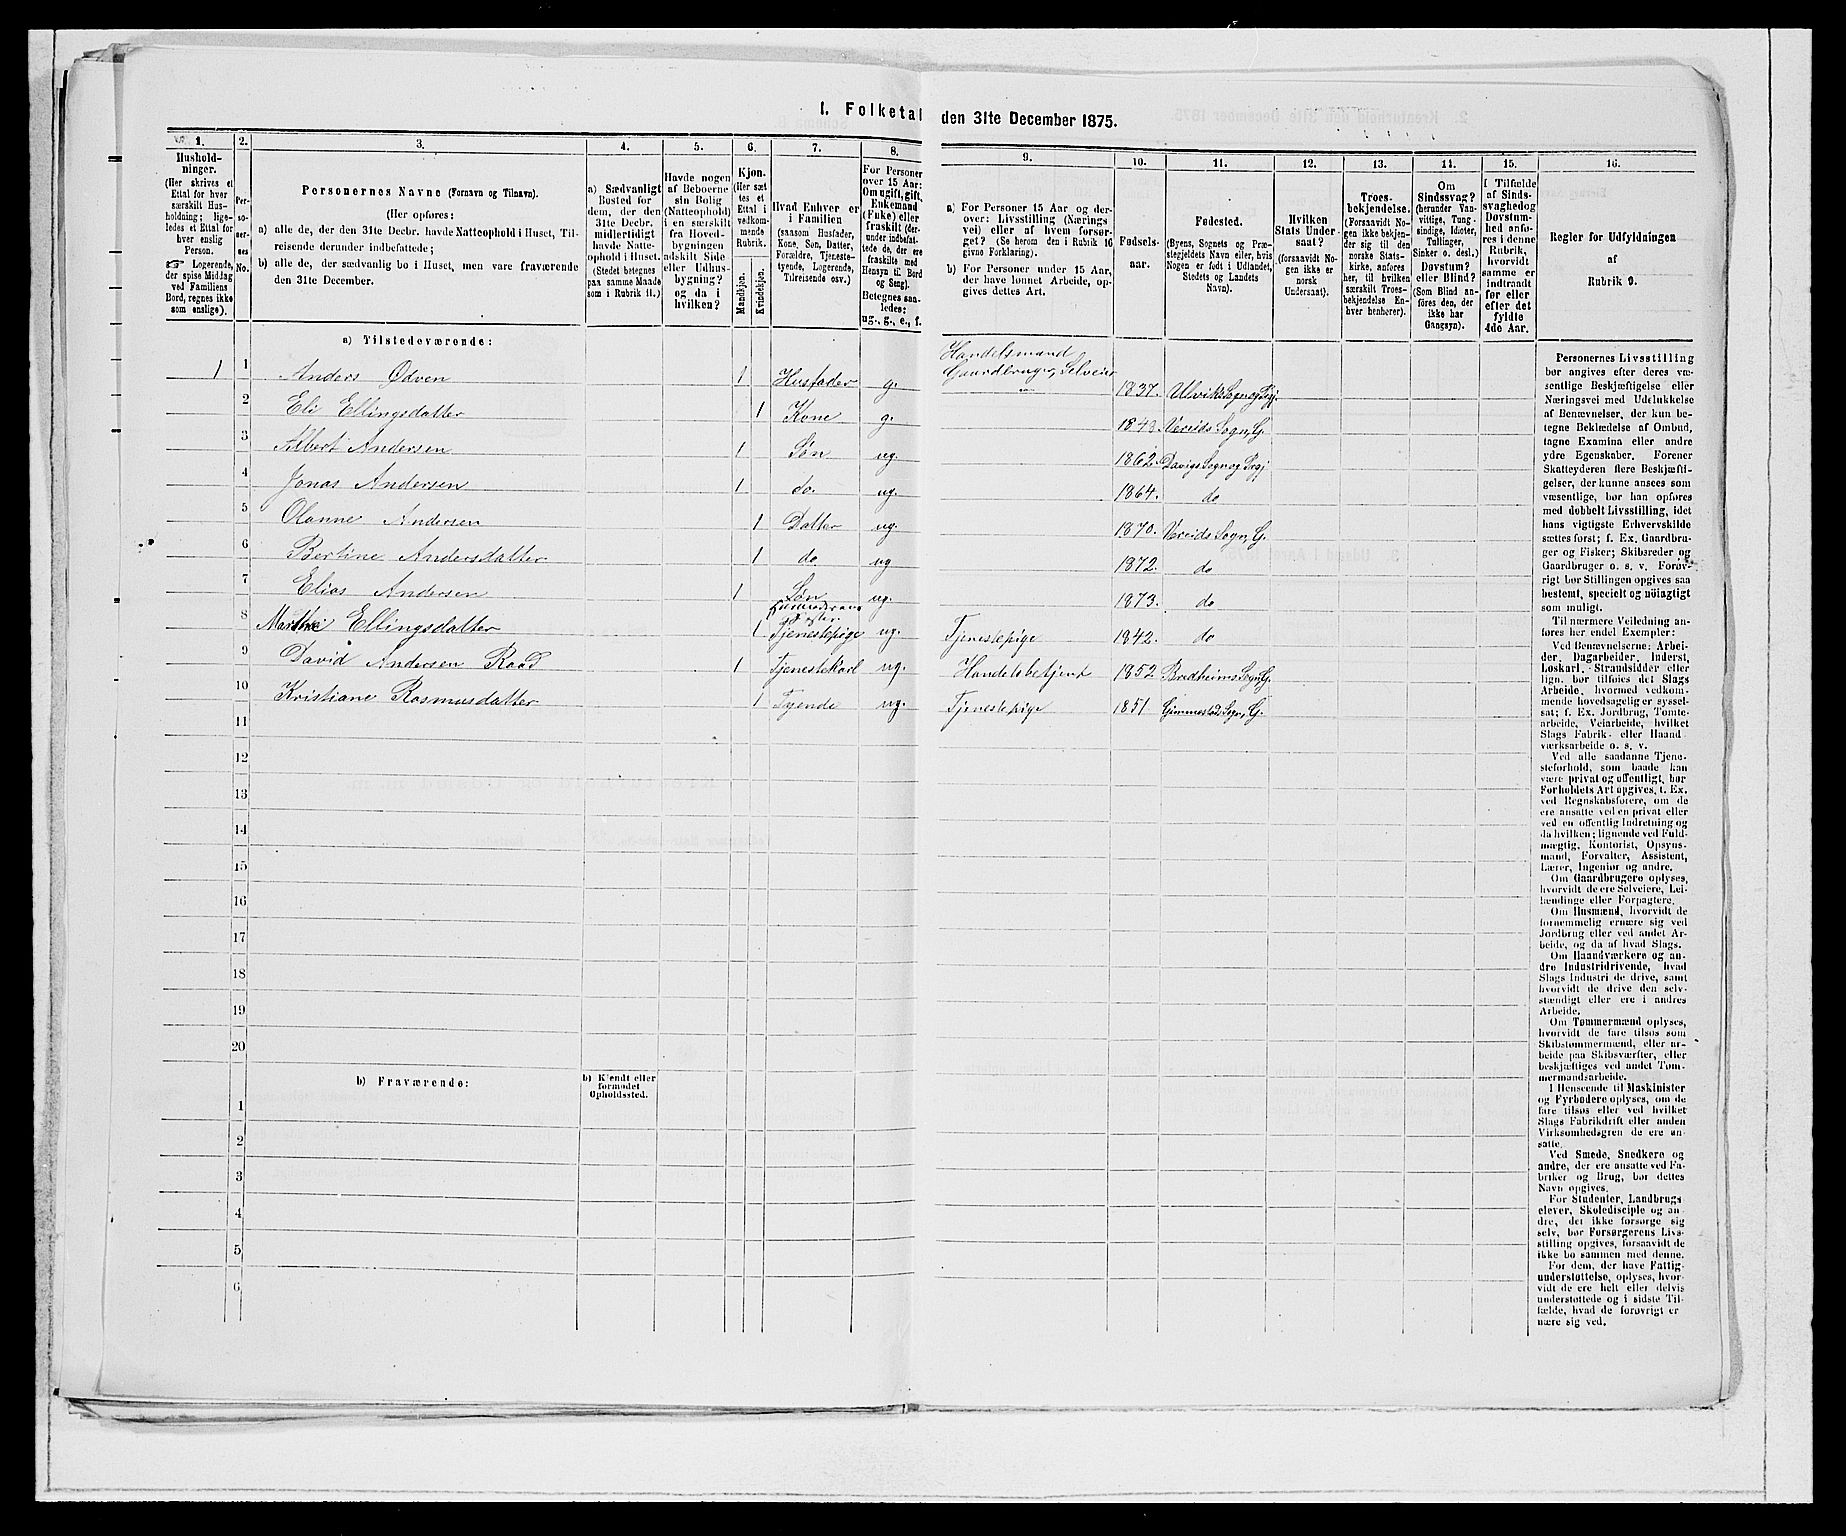 I. Folketal den 31te December 1875.
1.
Hushold-
ninger.
(Her skrives et
Ettal for hver
særskilt Hus-
holdning; lige-
ledes et Ettal for
hver enslig
Person.
☞ Logerende,
der spise Middag
ved Familiens
Bord, regnes ikke
som enslige).
2.
Per-
so-
ner-
nes
No.
3.
Personernes Navne (Fornavn og Tilnavn).
(Her opføres:
a) alle de, der den 31te Decbr. havde Natteophold i Huset, Til-
reisende derunder indbefattede;
b) alle de, der sædvanlig bo i Huset, men vare fraværende
den 31te December.
4.
a) Sædvanligt
Bosted for
dem, der den
31te Decbr.
midlertidigt
havde Natte-
ophold i Huset.
(Stedet betegnes
paa samme Maade
som i Rubrik 11.)
5.
Havde nogen
af Beboerne
sin Bolig
(Natteophold)
i en særskilt
fra Hoved-
bygningen
adskilt Side
eller Udhus-
bygning?
og da i
hvilken?
6.
Kjøn.
(Her sæt
tes et
Ettal i
vedkom-
mende
Rubrik.
Mandkjøn.
Kvindekjøn.
7.
Hvad Enhver er
i Familien
(saasom Husfader,
Kone, Søn, Datter,
Forældre, Tjeneste-
tyende, Logerende,
Tilreisende osv.)
8.
For Personer
over 15 Aar:
Om ugift, gift,
Enkemand
(Enke) eller
fraskilt (der-
under indbefat-
tede de, der ere
fraskilte med
Hensyn til Bord
og Seng).
Betegnes saa-
ledes:
ug., g., e., f.
9.
a) For Personer 15 Aar og der-
over: Livsstilling (Nærings-
vei) eller af hvem forsør-
get? (Se herom den i Rubrik 16
givne Forklaring).
b) For Personer under 15 Aar,
der have lønnet Arbeide, op-
gives dettes Art.
10.
Fødsels-
aar.
11.
Fødested.
(Byens, Sognets og Præ-
stegjeldets Navn eller, hvis
Nogen er født i Udlandet,
Stedets og Landets
Navn).
12.
Hvilken
Stats Under-
saat?
(forsaavidt No-
gen ikke er
norsk
Undersaat).
13.
Troes-
bekjendelse.
(Forsaavidt No-
gen ikke bekjen-
der sig til den
norske Stats-
kirke, anføres
her, til hvilken
særskilt Troes-
bekjendelse En-
hver henhører).
14.
Om
Sindssvag?
(herunder Van-
vittige, Tung-
sindige, Idioter,
Tullinger,
Sinker o. desl.)
Døvstum?
eller Blind?
(Som Blind an-
føres den, der
ikke har
Gangsyn).
15.
I Tilfælde
af Sinds-
svaghed og
Døvstum-
hed anfø-
res i denne
Rubrik,
hvorvidt
samme er
indtraadt
før eller
efter det
fyldte
4de Aar.
16.
Regler for Udfyldningen
af
Rubrik 9.
a) Tilstedeværende:
1 1 Anders Ødven 1 Husfader g. Handelsmand Gaardbruger Selveier 1837. Ulviks Sogn og Pgj.
2 Eli Ellingsdatter 1 Kone g. 1843 Vereids Sogn, G.
3 Albert Andersen 1 Søn ug. 1862. Davigs Sogn og Pgj
4 Jonas Andersen 1 do. ug. 1864. do
5 Olanne Andersen 1 Datter ug. 1870. Vereids Sogn, G.
6 Bertine Andersdatter 1 do ug 1872. do
7 Elias Andersen 1 Søn ug. 1873. do
8 Marthe Ellingsdatter 1 Søster. Tjenestepige ug. Tjenestepige 1842. do
9 David Andersen Raad 1 Tjenestekarl ug. Handelsbetjent 1852 Bredheims Sogn, G.
10 Kristiane Rasmusdatter 1 Tyende ug. Tjenestepige 1851 Gimmestad Sogn, G.
11
12
13
14
15
16
17
18
19
20
b) Fraværende:
b) Kjendt eller
formodet
Opholdssted.
1
2
3
4
5
6
Personernes Livsstilling
bør angives efter deres væ-
sentlige Beskjæftigelse eller
Næringsvei med Udelukkelse
af Benævnelser, der kun be-
tegne Beklædelse af Ombud,
tagne Examina eller andre
ydre Egenskaber. Forener
Skatteyderen flere Beskjæfti-
gelser, der kunne ansees som
væsentlige, bør han opføres
med dobbelt Livsstilling, idet
hans vigtigste Erhvervskilde
sættes først; f. Ex. Gaardbru-
ger og Fisker; Skibsreder og
Gaardbruger o. s. v. Forøv-
rigt bør Stillingen opgives saa
bestemt, specielt og nøiagtigt
som muligt.
Til nærmere Veiledning an-
føres her endel Exempler:
Ved Benævnelserne: Arbei-
der, Dagarbeider, Inderst,
Løskarl, Strandsidder eller
lign. bør tilføies det Slags
Arbeide, hvormed vedkom-
mende hovedsagelig er syssel-
sat; f. Ex. Jordbrug, Tomte-
arbeide, Veiarbeide, hvilket
Slags Fabrik- eller Haand
værksarbeide o. s. v.
Ved alle saadanne Tjene-
steforhold, som baade kan
være privat og offentligt, bør
Forholdets Art opgives, f. Ex.
ved Regnskabsførere, om de
ere ansatte ved en privat eller
ved en offentlig Indretning og
da hvilken; lignende ved Fuld-
mægtig, Kontorist, Opsyns-
mand, Forvalter, Assistent,
Lærer, Ingeniør og andre.
Om Gaardbrugere oplyses,
hvorvidt de ere Selveiere, Lei-
lændinge eller Forpagtere.
Om Husmænd, hvorvidt de
fornemmelig ernære sig ved
Jordbrug eller ved andet Ar-
beide, og da af hvad Slags.
Om Haandværkere og an-
dre Industridrivende, hvad
Slags Industri de drive, samt
hvorvidt de drive den selv-
stændigt eller ere i andres
Arbeide.
Om Tømmermænd oplyses,
hvorvidt de fare tilsøs som
Skibstømmermænd, eller ar-
beide paa Skibsværfter, eller
beskjæftiges ved andet Tøm-
mermandsarbeide.
I Henseende til Maskinister
og Fyrbødere oplyses, om de
fare tilsøs eller ved hvilket
Slags Fabrikdrift eller anden
Virksomhedsgren de ere an-
satte.
Ved Smede, Snedkere og
andre, der ere ansatte ved Fa-
briker og Brug, bør dettes
Navn opgives.
For Studenter, Landbrugs
elever, Skoledisciple og an-
dre, der ikke forsørge sig
selv, bør Forsørgerens Livs-
stilling opgives, forsaavidt de
ikke bo sammen med denne.
For dem, der have Fattig-
understøttelse, oplyses, hvor-
vidt de ere helt eller delvis
understøttede og i sidste Til-
fælde, hvad de forøvrigt er
nære sig ved.